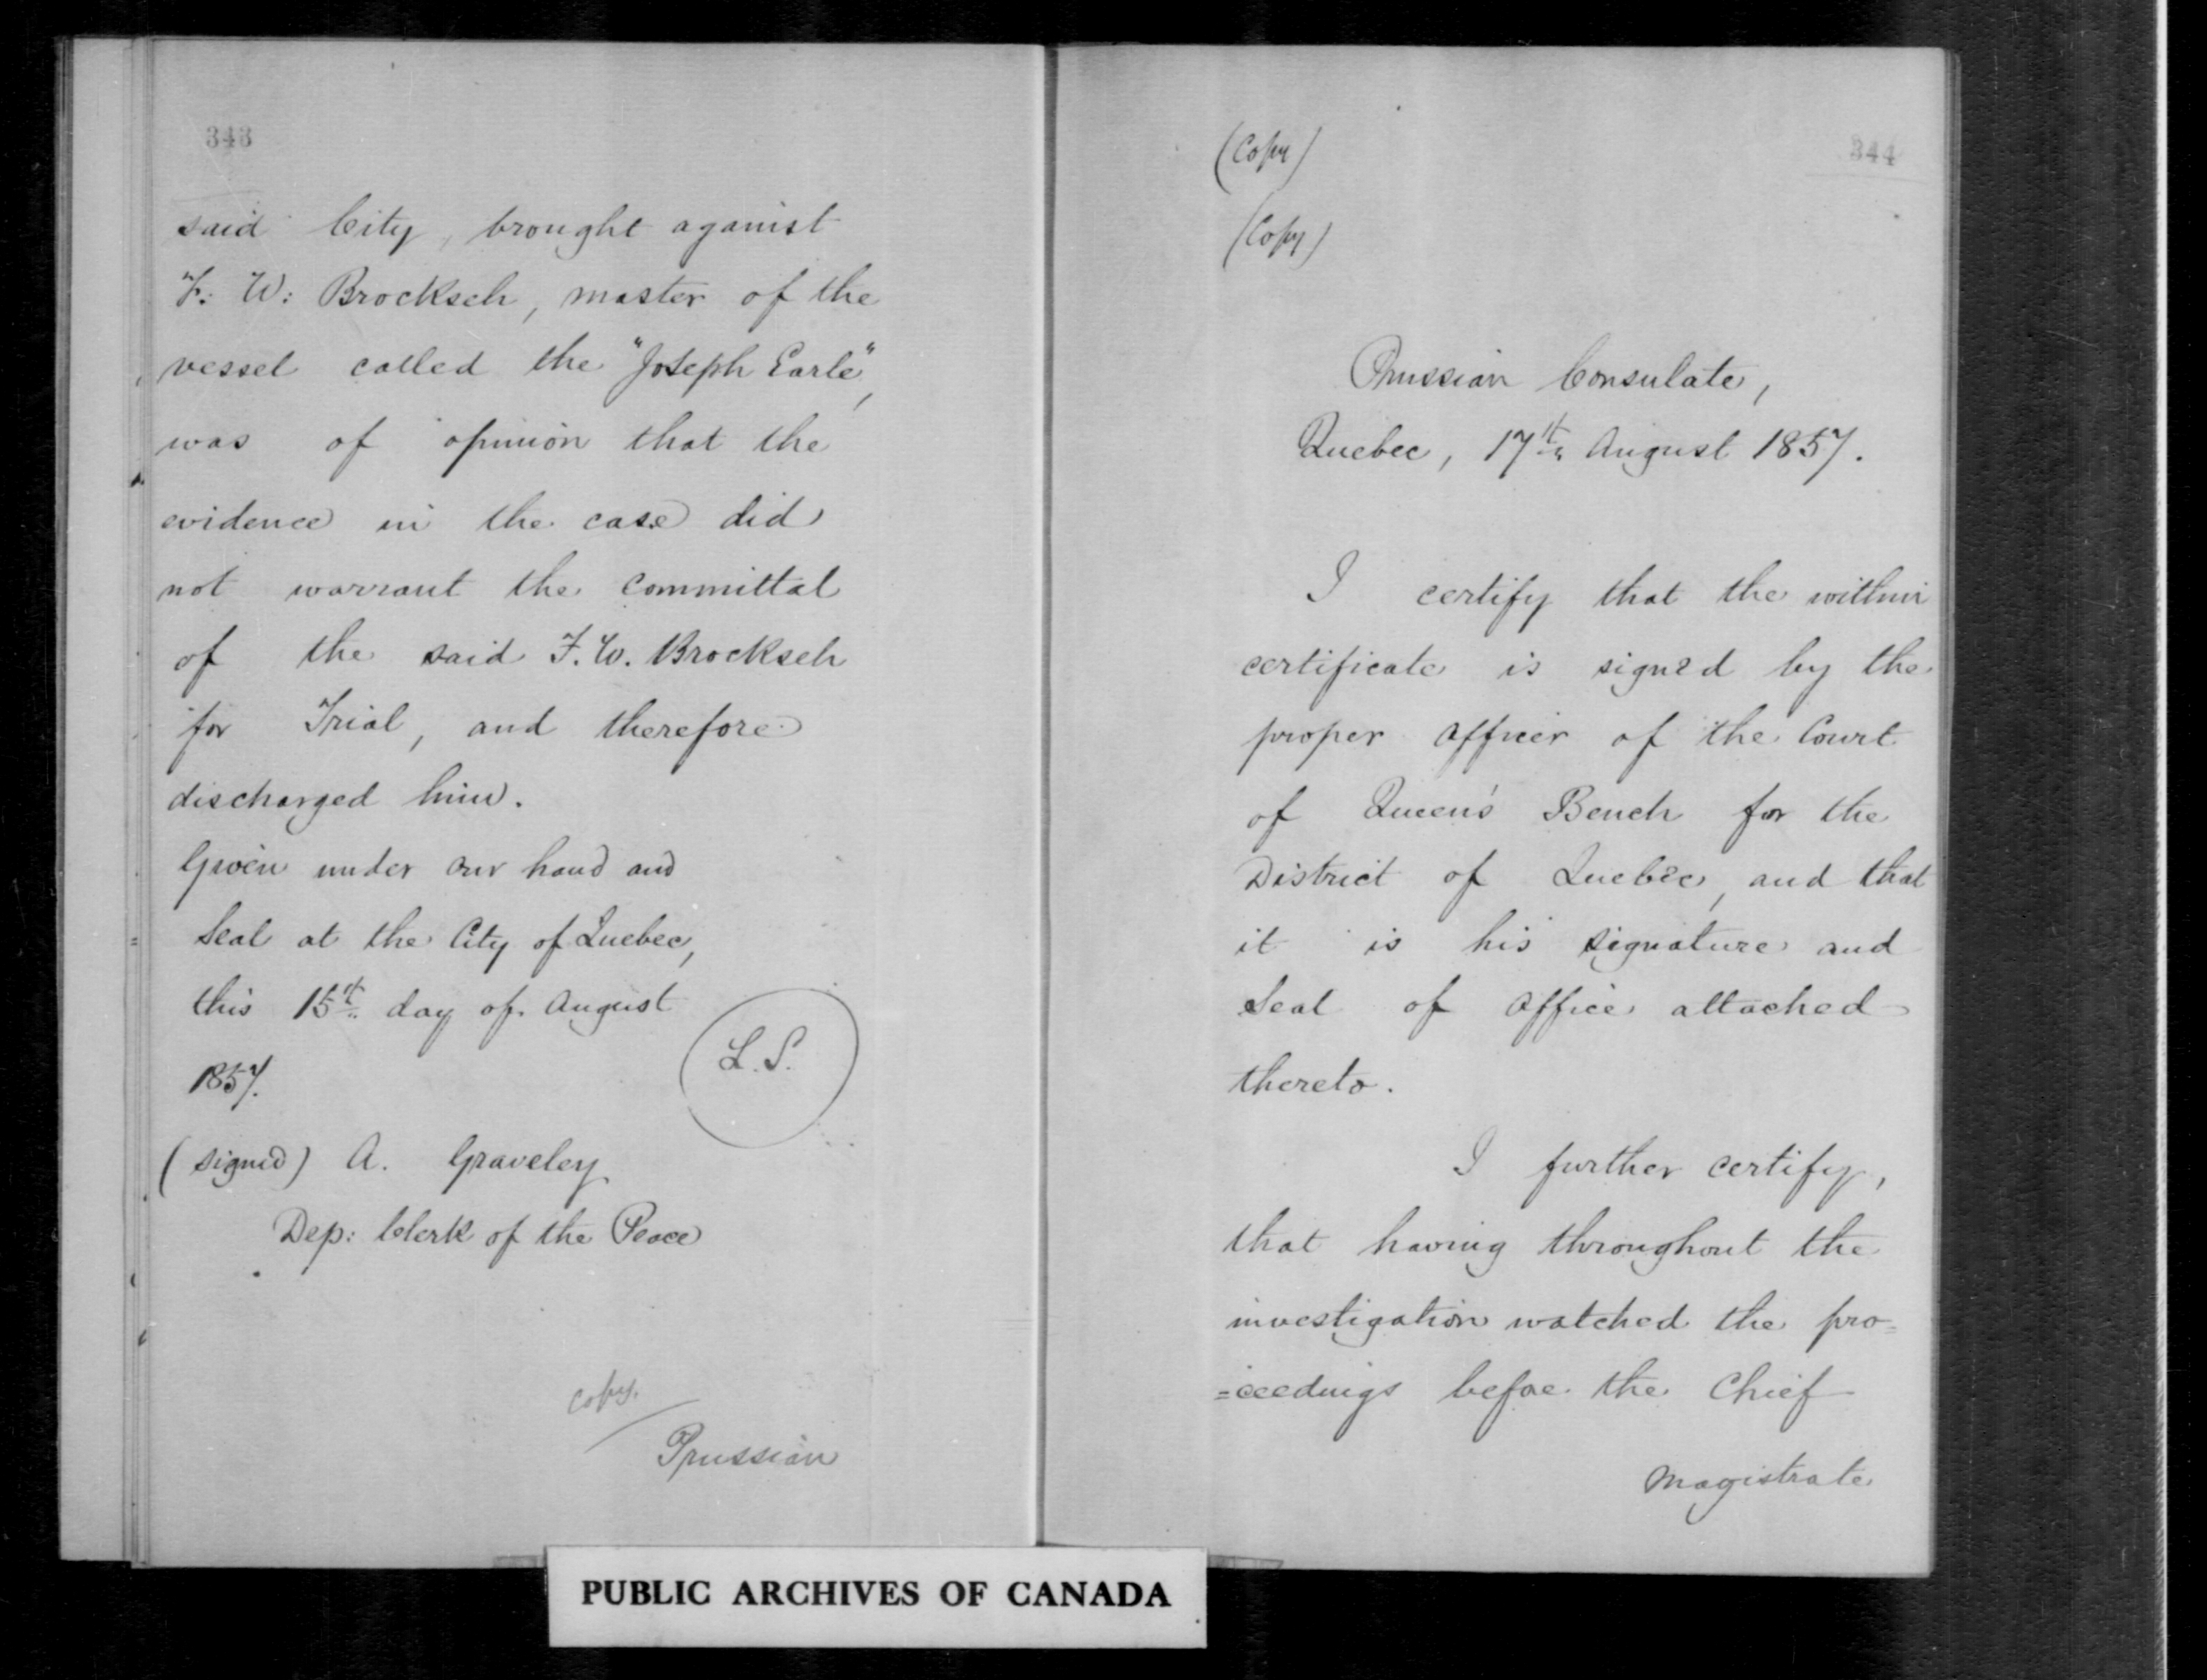 343
said City, brought against
F. W: Brocksch, master of the
vessel called the "Joseph Earle",
was of opinion that the
evidence in the case did
not warrant the committal
of the said F. W. Brocksch
for Trial, and therefore
discharged him.
Given under our hand and
Seal at the City of Quebec,
this 15th day of August
1857.
L. S.
(signed) A. Graveley
Dep: Clerk of the Peace
copy.
Prussian
344
(Copy)
(Copy)
Prussian Consulate,
Quebec, 17th August 1857.
I certify that the within
certificate is signed by the
proper Officer of the Court
of Queen's Bench for the
District of Quebec, and that
it is his signature and
Seal of Office attached
thereto.
I further certify,
that having throughout the
investigation watched the pro=
=ceedings before the Chief
Magistrate
PUBLIC ARCHIVES OF CANADA